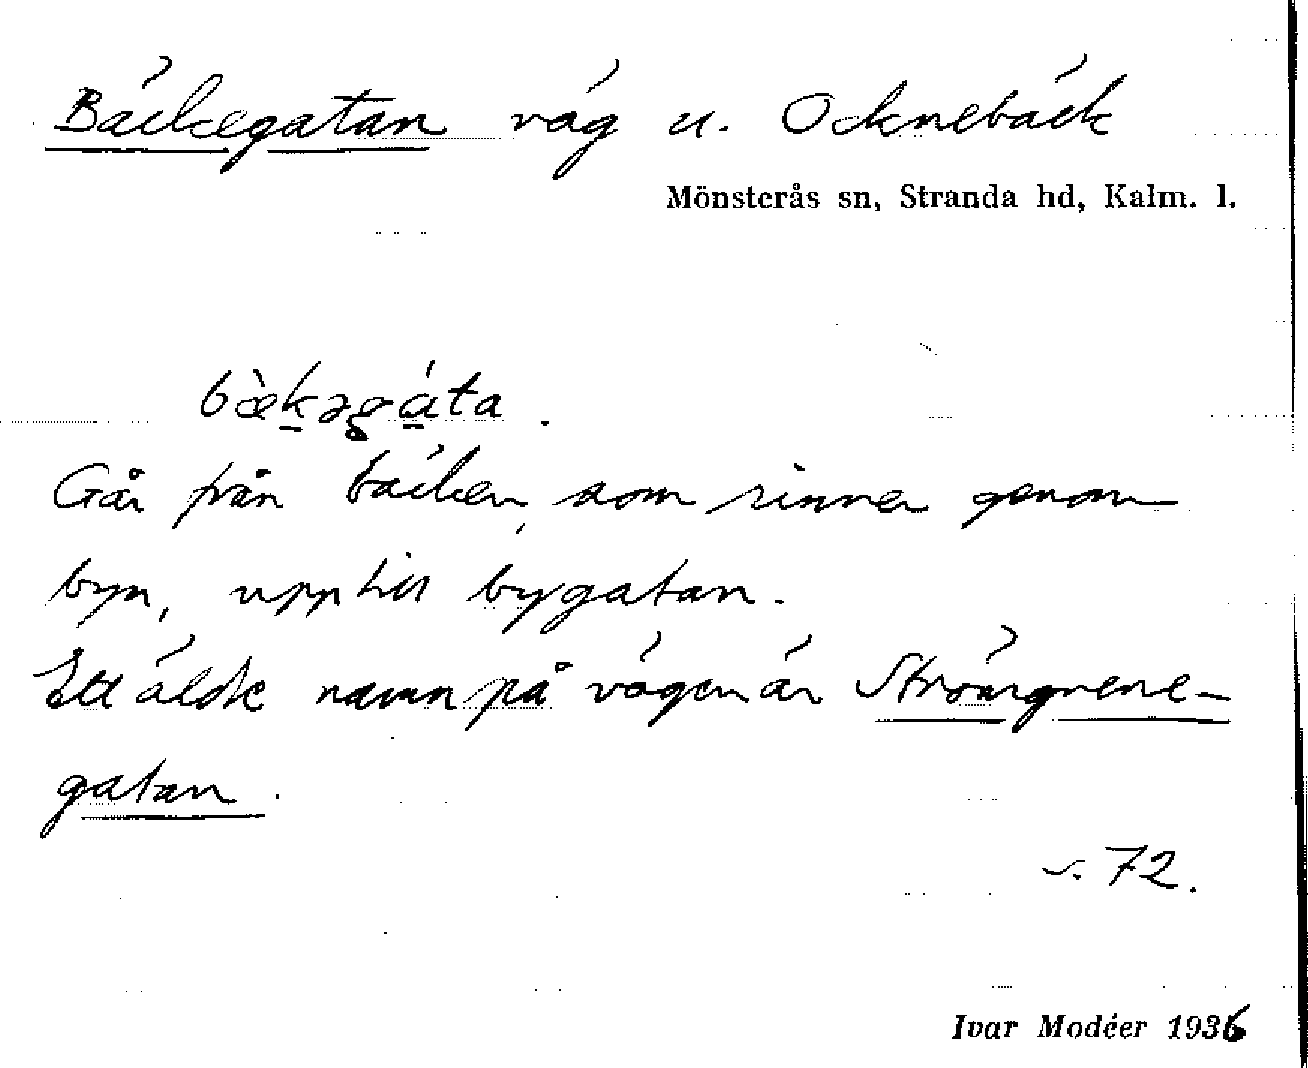 Bäckegatan väg u. Oknebäck
Mönsterås sn, Stranda hd, Kalm. l.
bæ̀kəgáta.
Går från bäcken, som rinner genom
byn, upp till bygatan.
Ett äldre namn på vägen är Strömgrene-
gatan.
s. 72.
Ivar Modéer 1936